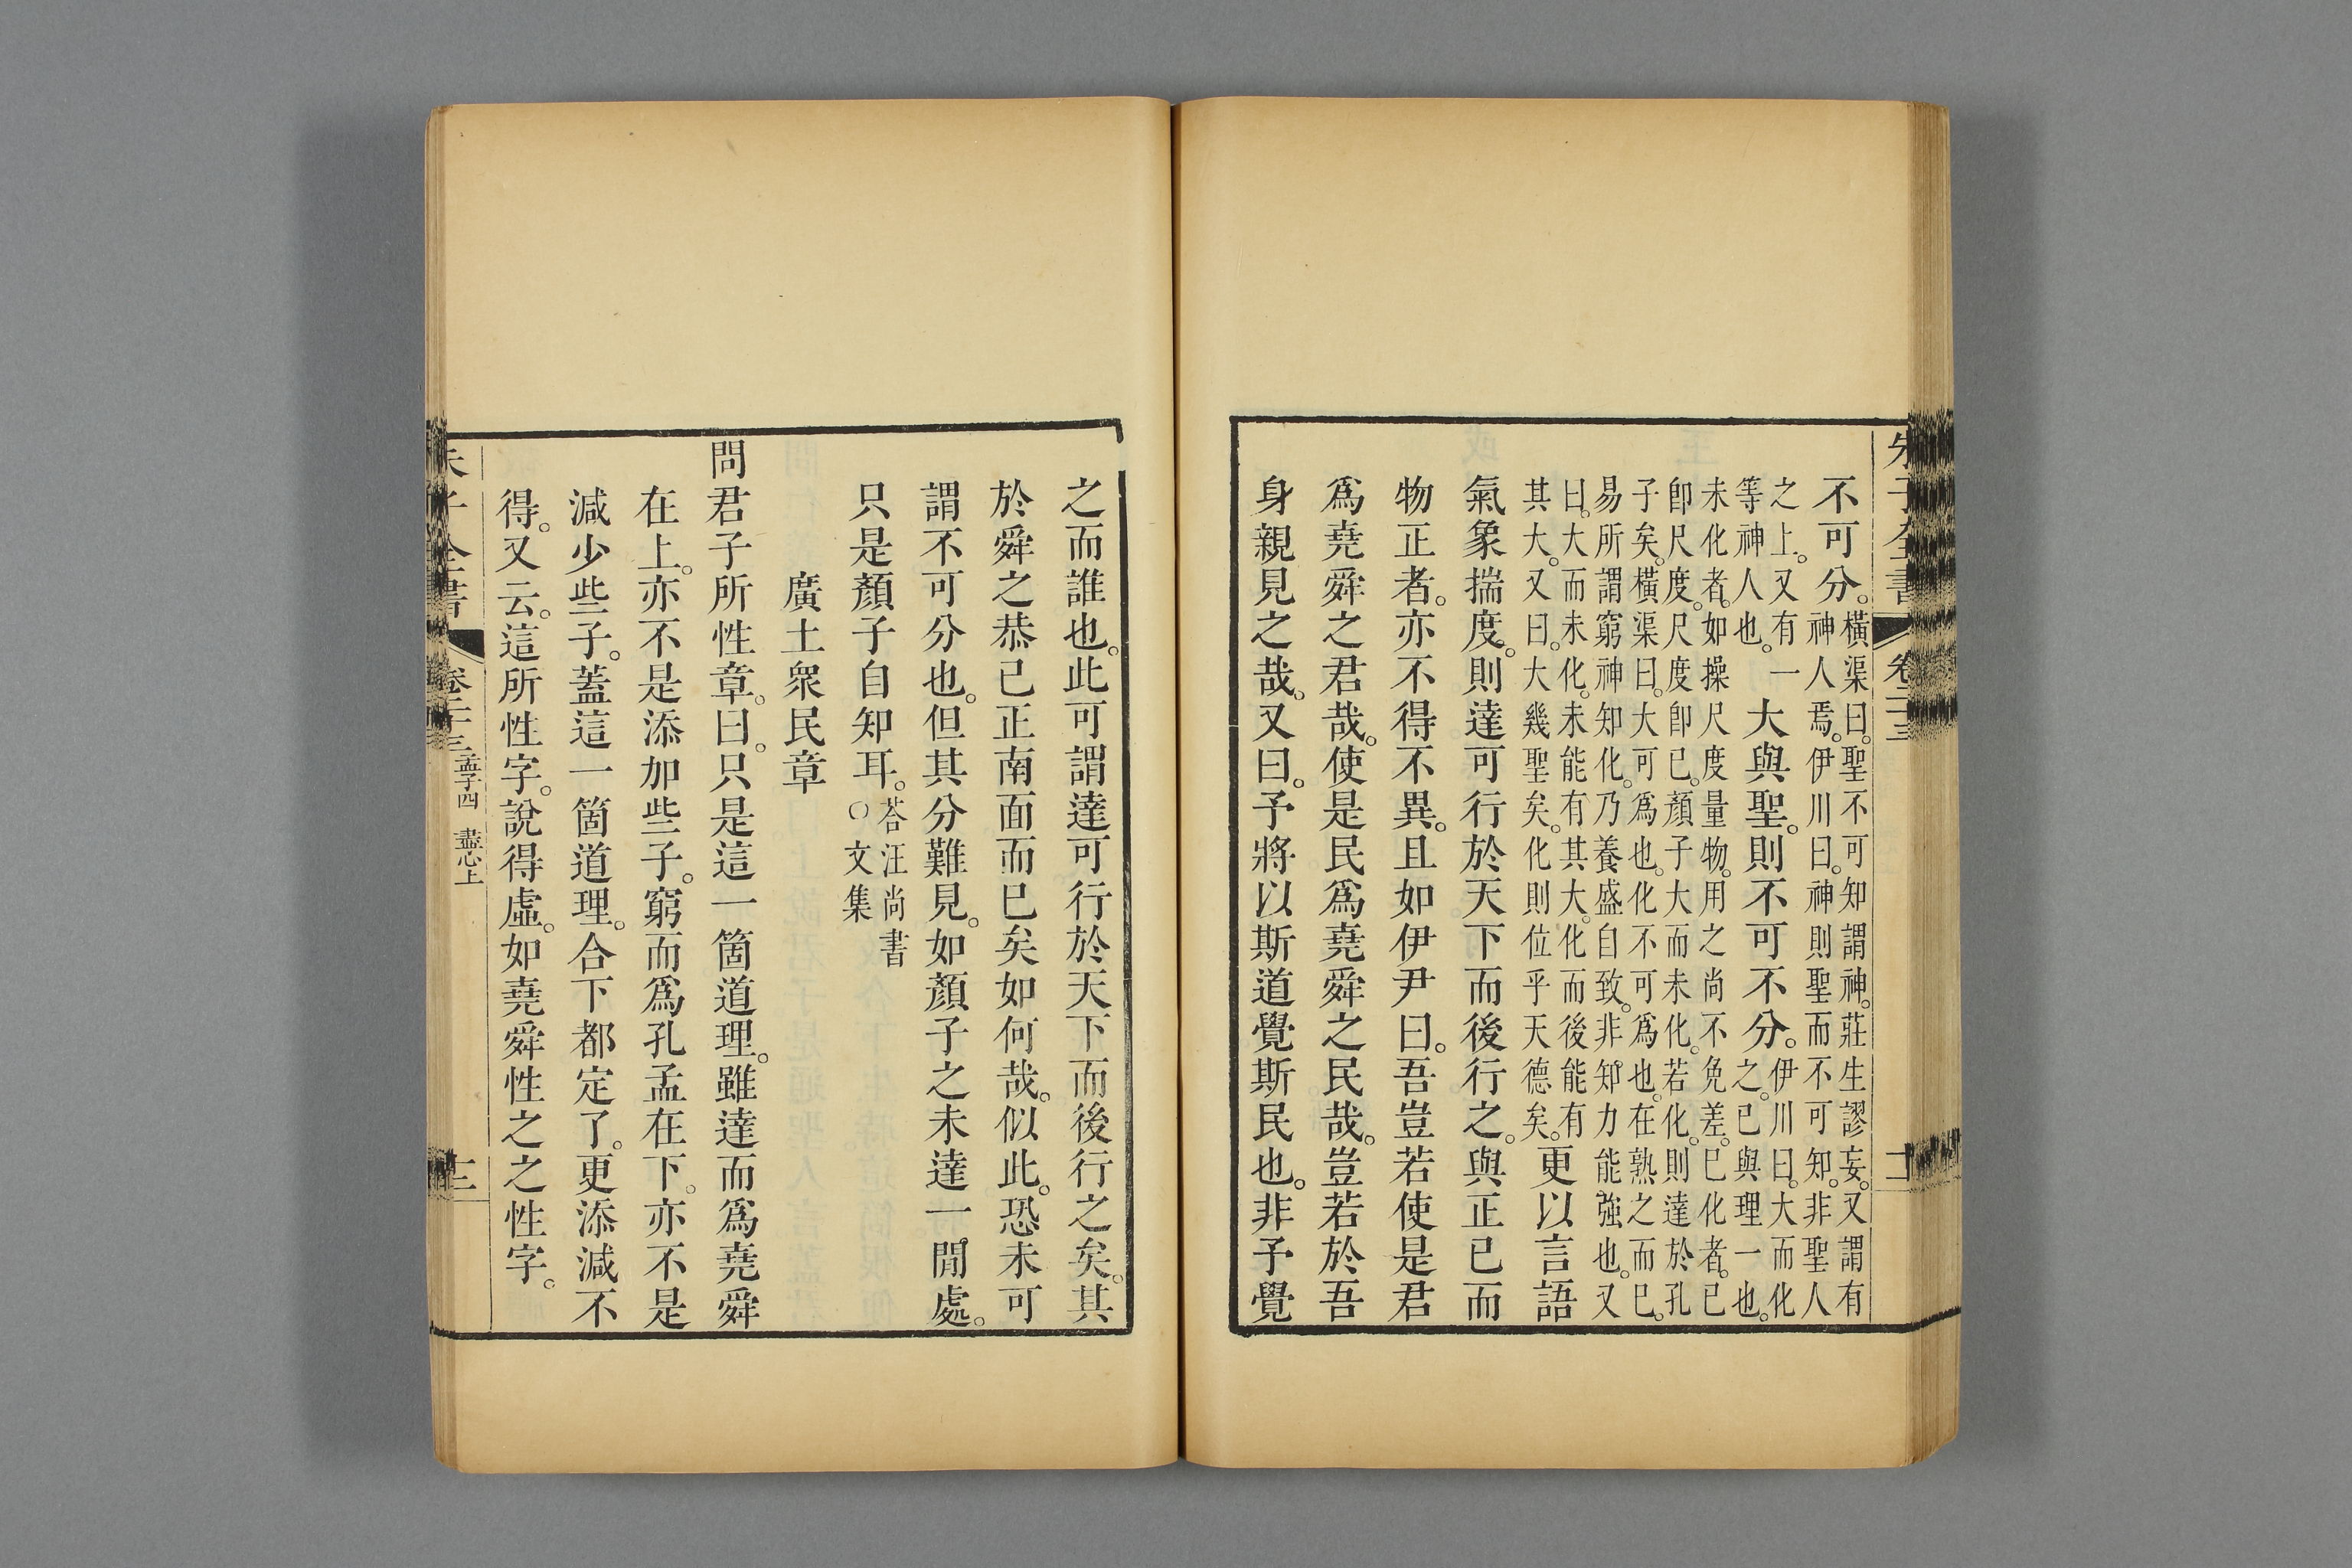 朱子全書 卷二十三 十二
不可分。橫渠曰。聖不可知謂神。莊生謬妄。又謂有
神人焉。伊川曰。神則聖而不可知。非聖人
之上。又有一
等神人也。大與聖。則不可不分。伊川曰。大而化
之。已與理一也。
未化者。如操尺度量物。用之尚不免差。已化者。已
卽尺度。尺度卽已。顏子大而未化。若化。則達於孔
子矣。橫渠曰。大可爲也。化不可爲也。在熟之而已。
易所謂窮神知化。乃養盛自致。非知力能強也。又
曰。大而未化。未能有其大。化而後能有
其大。又曰。大幾聖矣。化則位乎天德矣。更以言語
氣象揣度。則達可行於天下而後行之。與正已而
物正者。亦不得不異。且如伊尹曰。吾豈若使是君
爲堯舜之君哉。使是民爲堯舜之民哉。豈若於吾
身親見之哉。又曰。予將以斯道覺斯民也。非予覺
之而誰也。此可謂達可行於天下而後行之矣。其
於舜之恭已正南面而已矣如何哉。似此。恐未可
謂不可分也。但其分難見。如顏子之未達一閒處。
只是顏子自知耳。荅汪尚書
○文集
廣土衆民章
問君子所性章。曰。只是這一箇道理。雖達而爲堯舜
在上。亦不是添加些子。窮而爲孔孟在下。亦不是
減少些子。蓋這一箇道理。合下都定了。更添減不
得。又云。這所性字。說得虛。如堯舜性之之性字。
朱子全書 卷二十三 孟子四 盡心上 十三